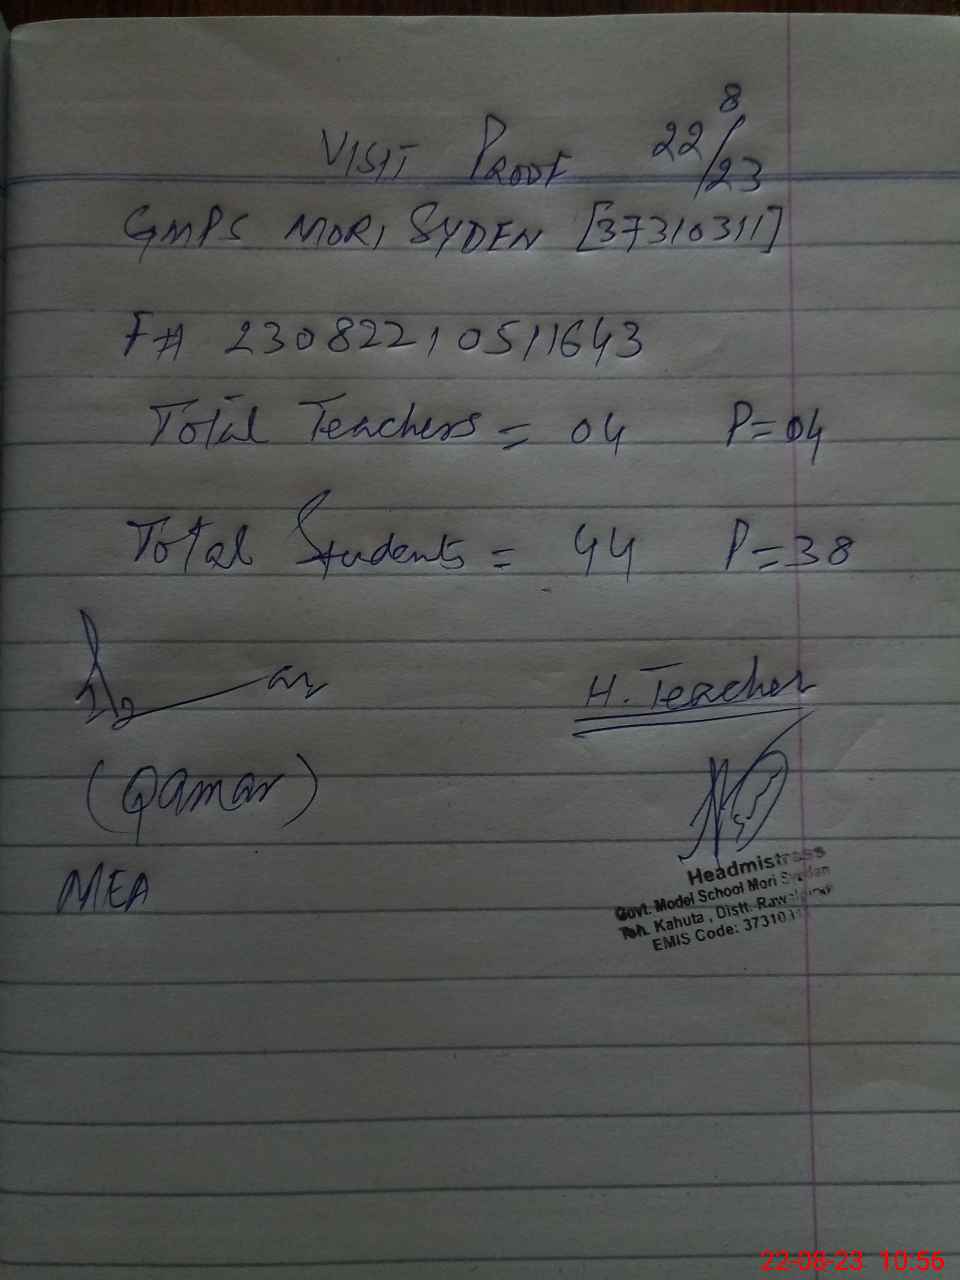 VISIT PROOF 22/8/23
GMPS MORI SYDEN [37310311]
F# 23082210511643
Total Teachers = 04 P=04
Total Students = 44 P=38
H. Teacher
(Qamar)
MEA
Headmistress
Govt. Model School Mori Syedan
Teh. Kahuta, Distt. Rawalpindi
EMIS Code: 373103
22-08-23 10:56